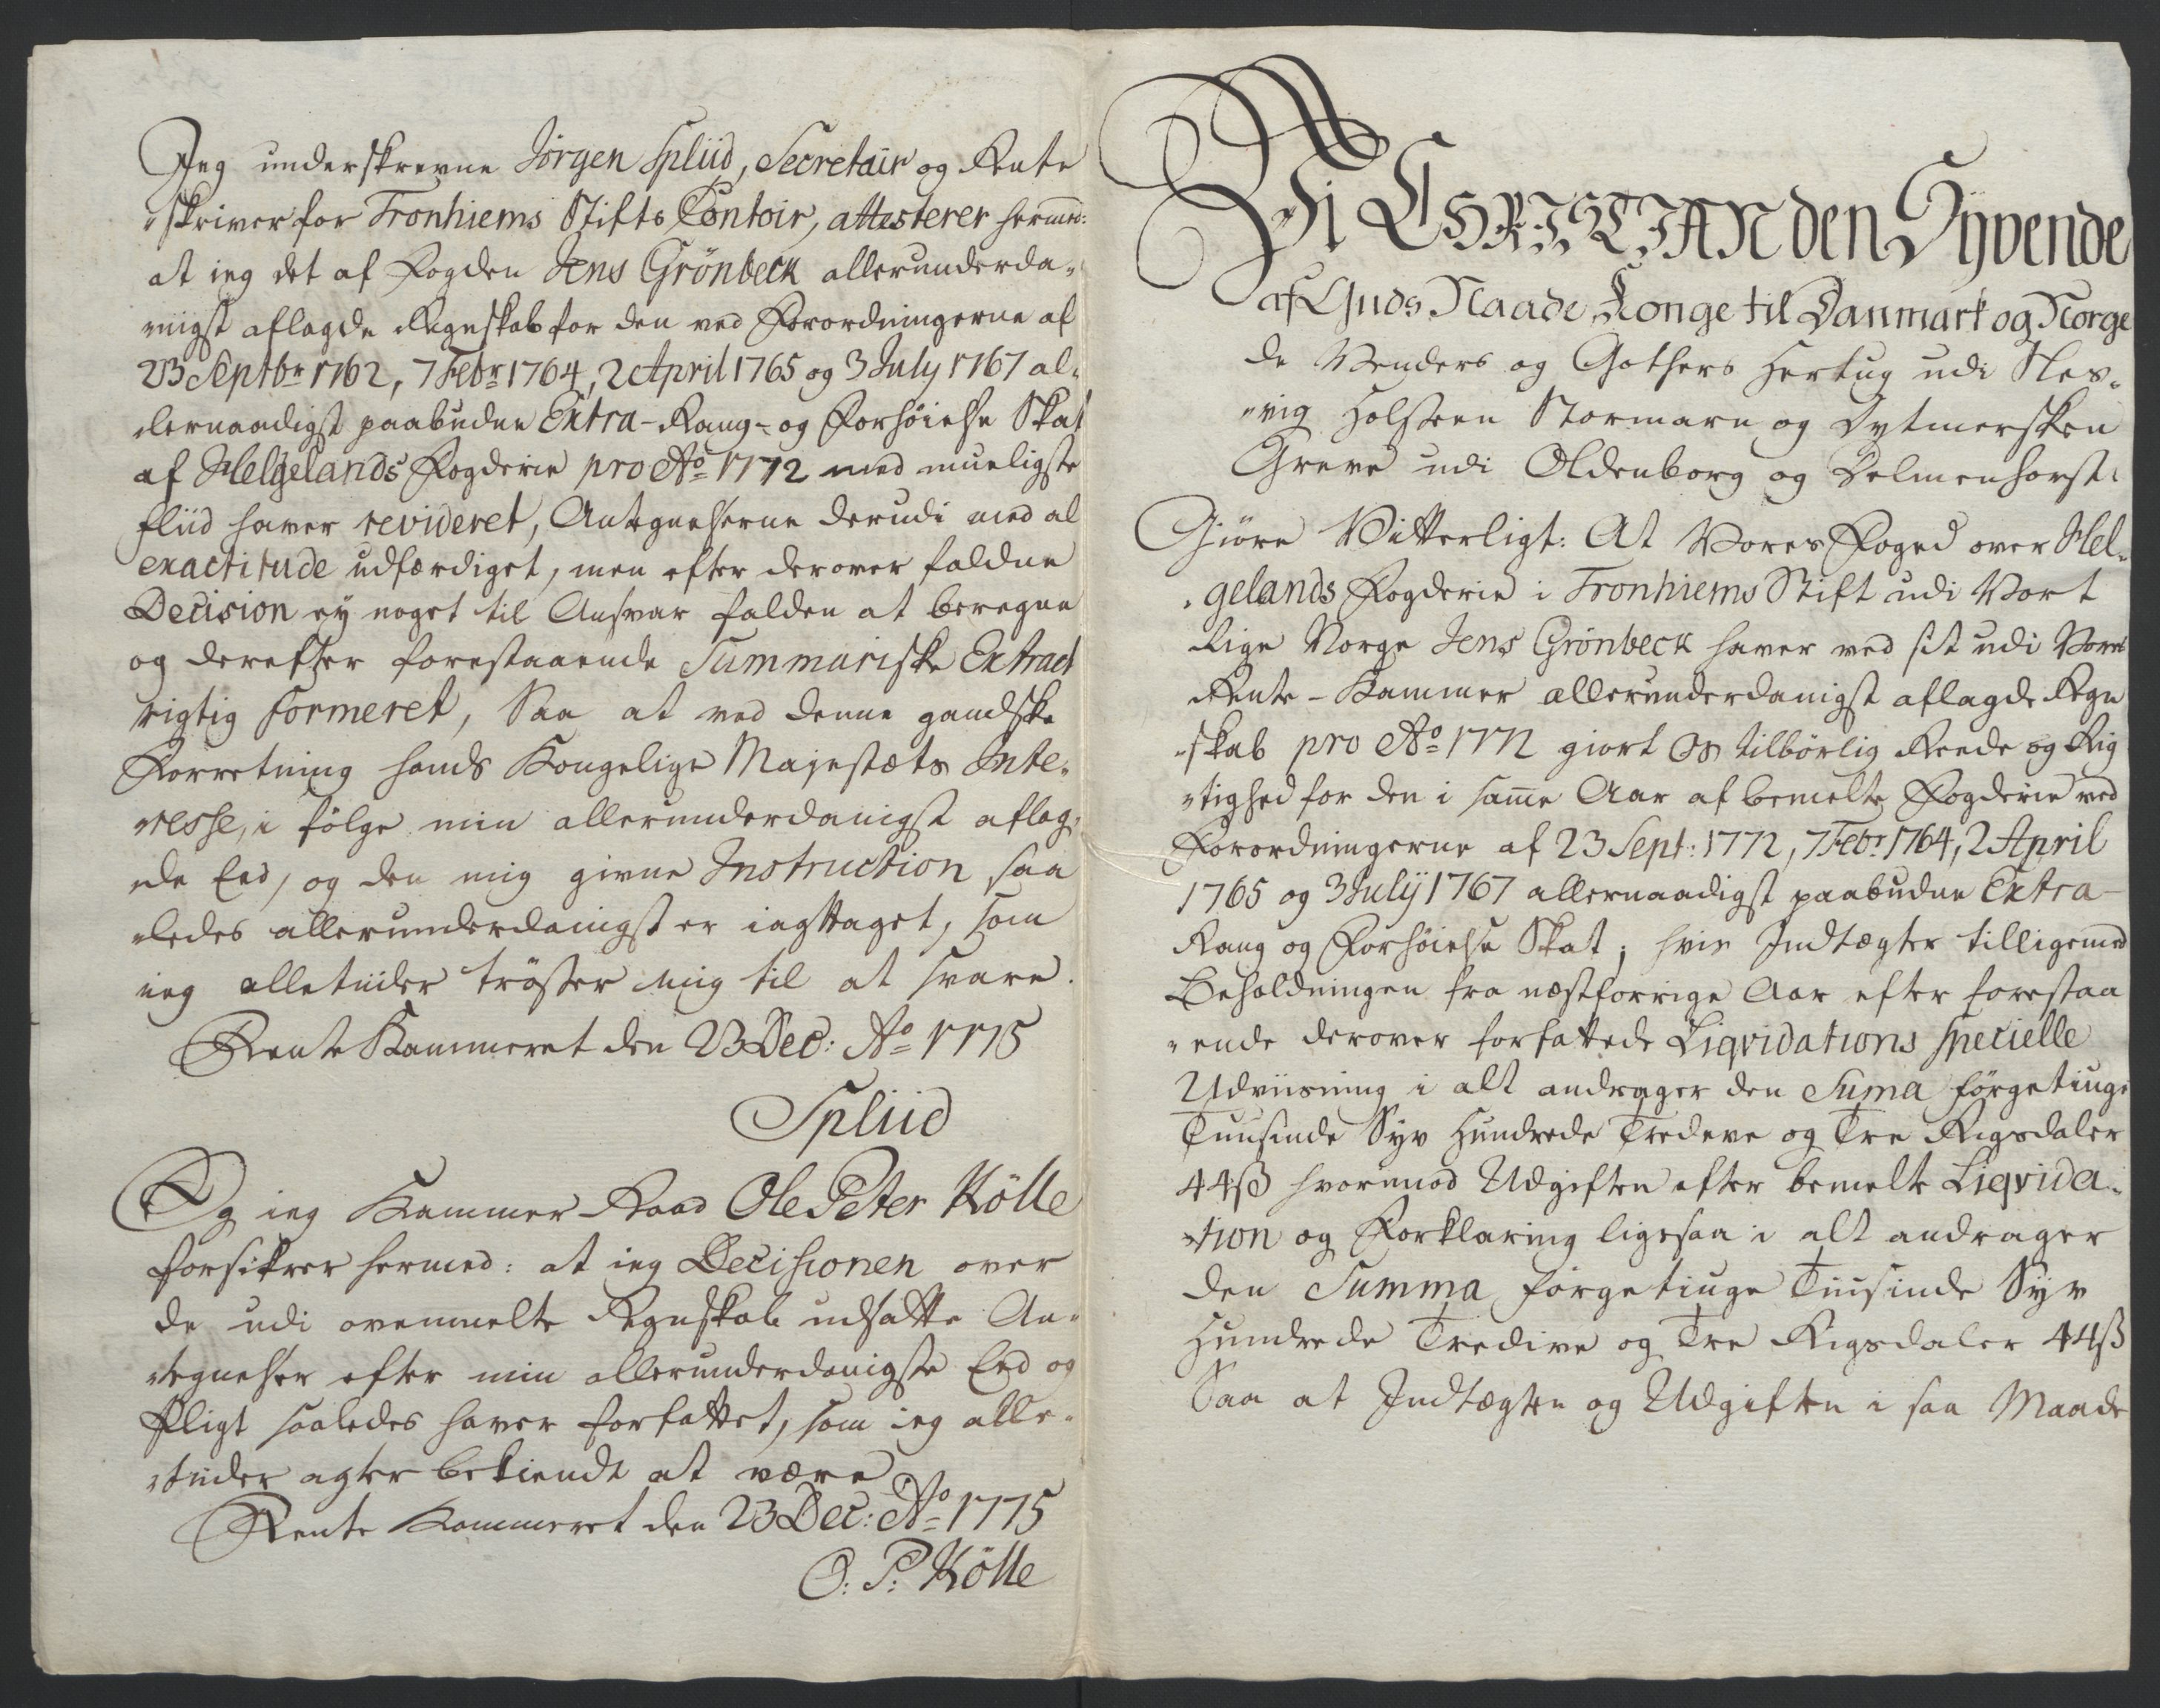 Jeg underskrevne Jörgen Spliid, Secretair og Rente
„skriver for Tronhiems Stifts Contoir, attesterer hermed:
at ieg det af Fogden Jens Grönbeck allerunderda-
nigst aflagde Regnskab for den ved Forordningerne af
23 Septbr 1762, 7 Febr 1764, 2 April 1765 og 3 July 1767 al-
lernaadigst paabudne Extra-Rang- og Forhöielse Skat
af Helgelands Fogderie pro Ao 1772 med mueligste
fliid haver revideret, Antegnelserne derudi med al
exactitude udfærdiget, men efter derover faldne
Decision ey noget til Ansvar falden at beregne
og derefter forestaaende Summariske Extract
rigtig formeret, Saa at ved denne gandske
Forretning hands Kongelige Majestæts Inte-
resse, i fölge min allerunderdanigst aflag-
de Eed, og den mig givne Instruction saa
„ledes allerunderdanigst er iagttaget, som
ieg alletiider tröster mig til at svare.
Rente Kammeret den 23 Dec: Ao 1775
Spliid
Og ieg Kammer Raad Ole Peter Kölle
forsikrer hermed: at ieg Decisionen over
de udi ovenmelte Regnskab udsatte An-
tegnelser efter min allerunderdanigste Eed og
Pligt saaledes haver forfattet, som ieg alle-
tiider agter bekiendt at være
Rente Kammeret den 23 Dec: Ao 1775
O: P: Kölle
Vi CHRISTIAN den Syvende
af Guds Naade Konge til Danmark og Norge
de Venders og Gothers Hertug udi Sles-
„vig Holsteen Stormarn og Dytmersken
Greve udi Oldenborg og Delmenhorst:
Giöre Vitterligt: At Vores Foged over Hel-
gelands Fogderie i Tronhiems Stift udi Vort
Rige Norge Jens Grönbeck haver ved sit udi Vores
Rente-Kammer allerunderdanigst aflagde Regn
„skab pro Ao 1772 giort Os tilbörlig Reede og Rig
„tighed for den i samme Aar af bemelte Fogderie ved
Forordningerne af 23 Sept: 1772, 7 Febr 1764, 2 April
1765 og 3 July 1767 allernaadigst paabudne Extra-
Rang og Forhöielse Skat; hvis Indtægter tilligemed
Beholdningen fra næstforrige Aar efter forestaa
„ende derover forfattede Liqvidations specielle
Udviisning i alt andrager den Suma förgetiuge
Tuusinde Syv Hundrede Tredeve og Tre Rigsdaler
44ß hvorimod Udgiften efter bemelte Liqvida-
tion og Forklaring ligesaa i alt andrager
den Summa förgetiuge Tuusinde Syv
Hundrede Tredive og Tre Rigsdaler 44ß
Saa at Indtægten og Udgiften i saa Maade